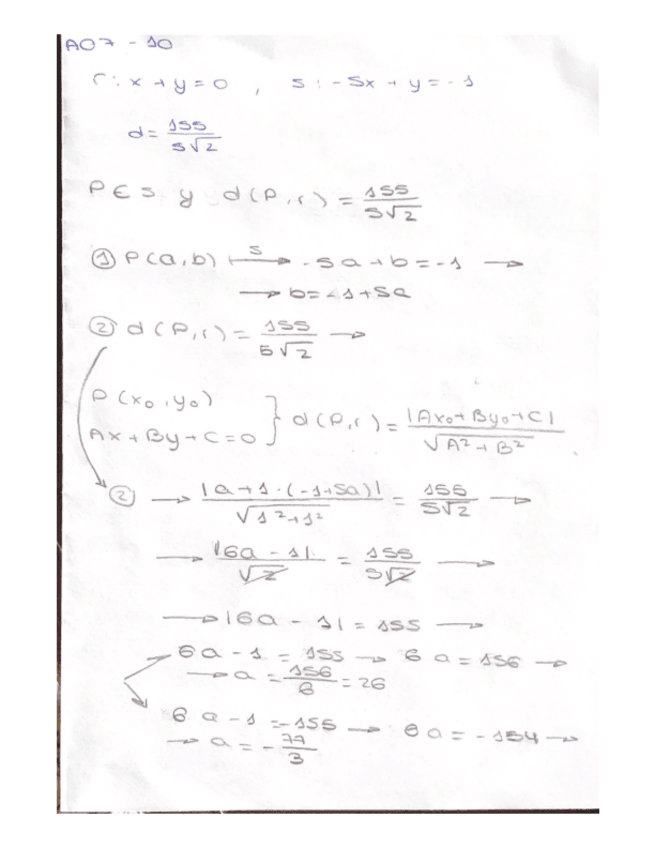 A07 - 10
r: x + y = 0 , s: -5x + y = -1
d = 155/5√2
P ∈ s y d(P,r) = 155/5√2
① P(a,b) s⟼ -5a + b = -1 →
→ b = -1 + 5a
② d(P,r) = 155/5√2 →
P(x₀,y₀)
Ax + By + C = 0 } d(P,r) = |Ax₀ + By₀ + C|/√A² + B²
② → |a + 1·(-1+5a)|/√1² + 1² = 155/5√2 →
→ |6a - 1|/√2 = 155/5√2 →
→ |6a - 1| = 155 →
6a - 1 = 155 → 6a = 156 →
→ a = 156/6 = 26
6a - 1 = -155 → 6a = -154 →
→ a = -77/3